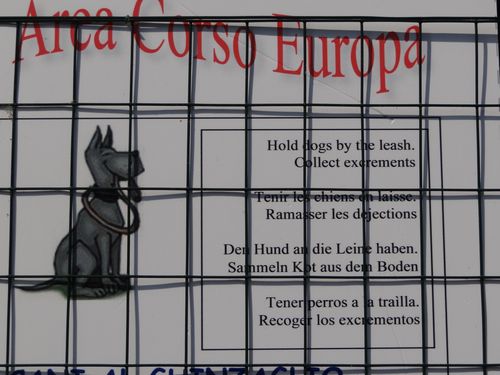 Area Corso Europa
Hold dogs by the leash.
Collect excrements
Tenir les chiens en laisse.
Ramasser les dejections
Den Hund an die Leine haben.
Sammeln Kot aus dem Boden
Tener perros a la trailla.
Recoger los excrementos
CANI AL GUINZAGLIO